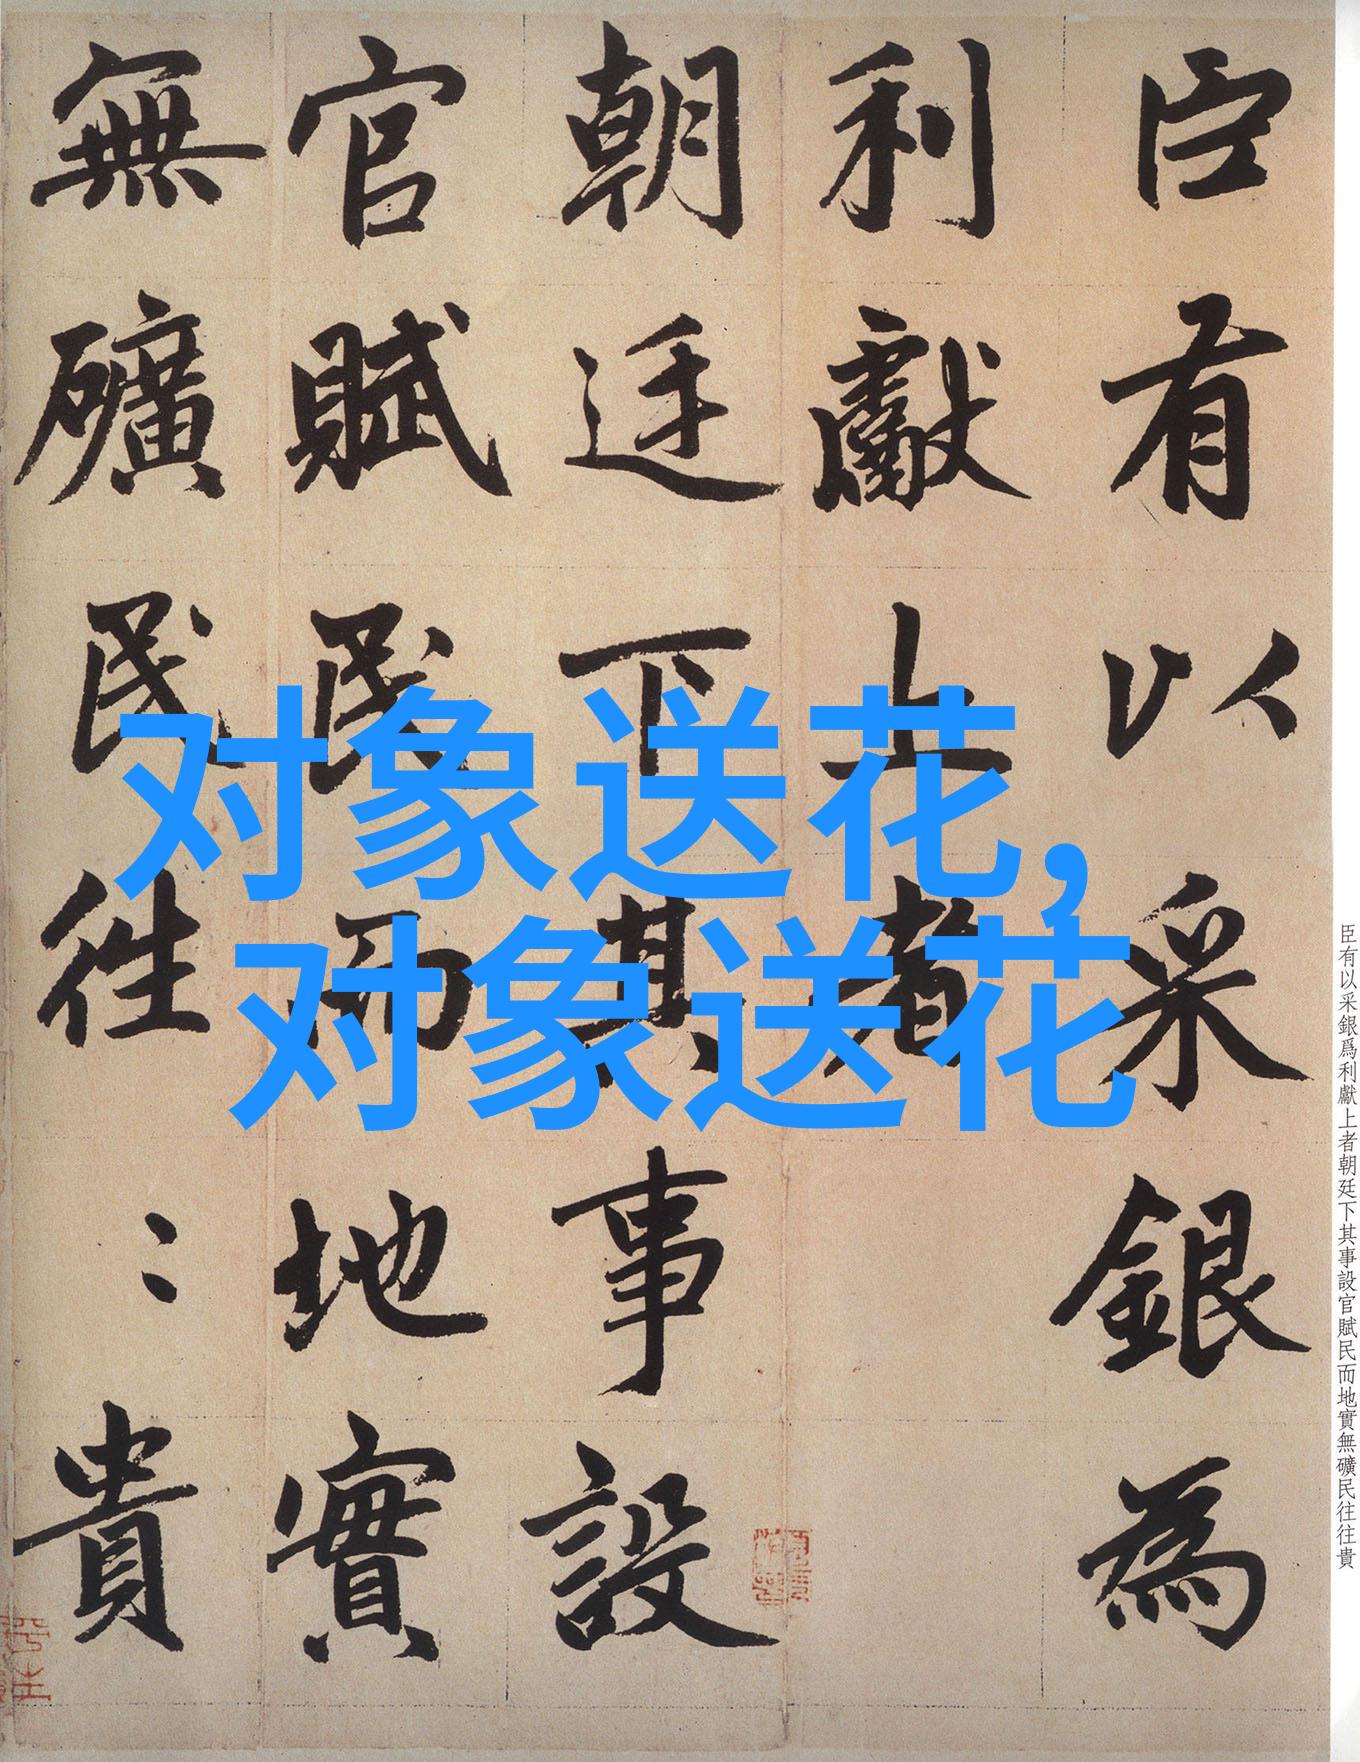 臣有以采銀為
利獻上者
朝廷下其事設
官賦民而地實
無礦民往〻貴
对象送花，
对象送花
臣有以采銀爲利獻上者朝廷下其事設官賦民而地實無礦民往往貴